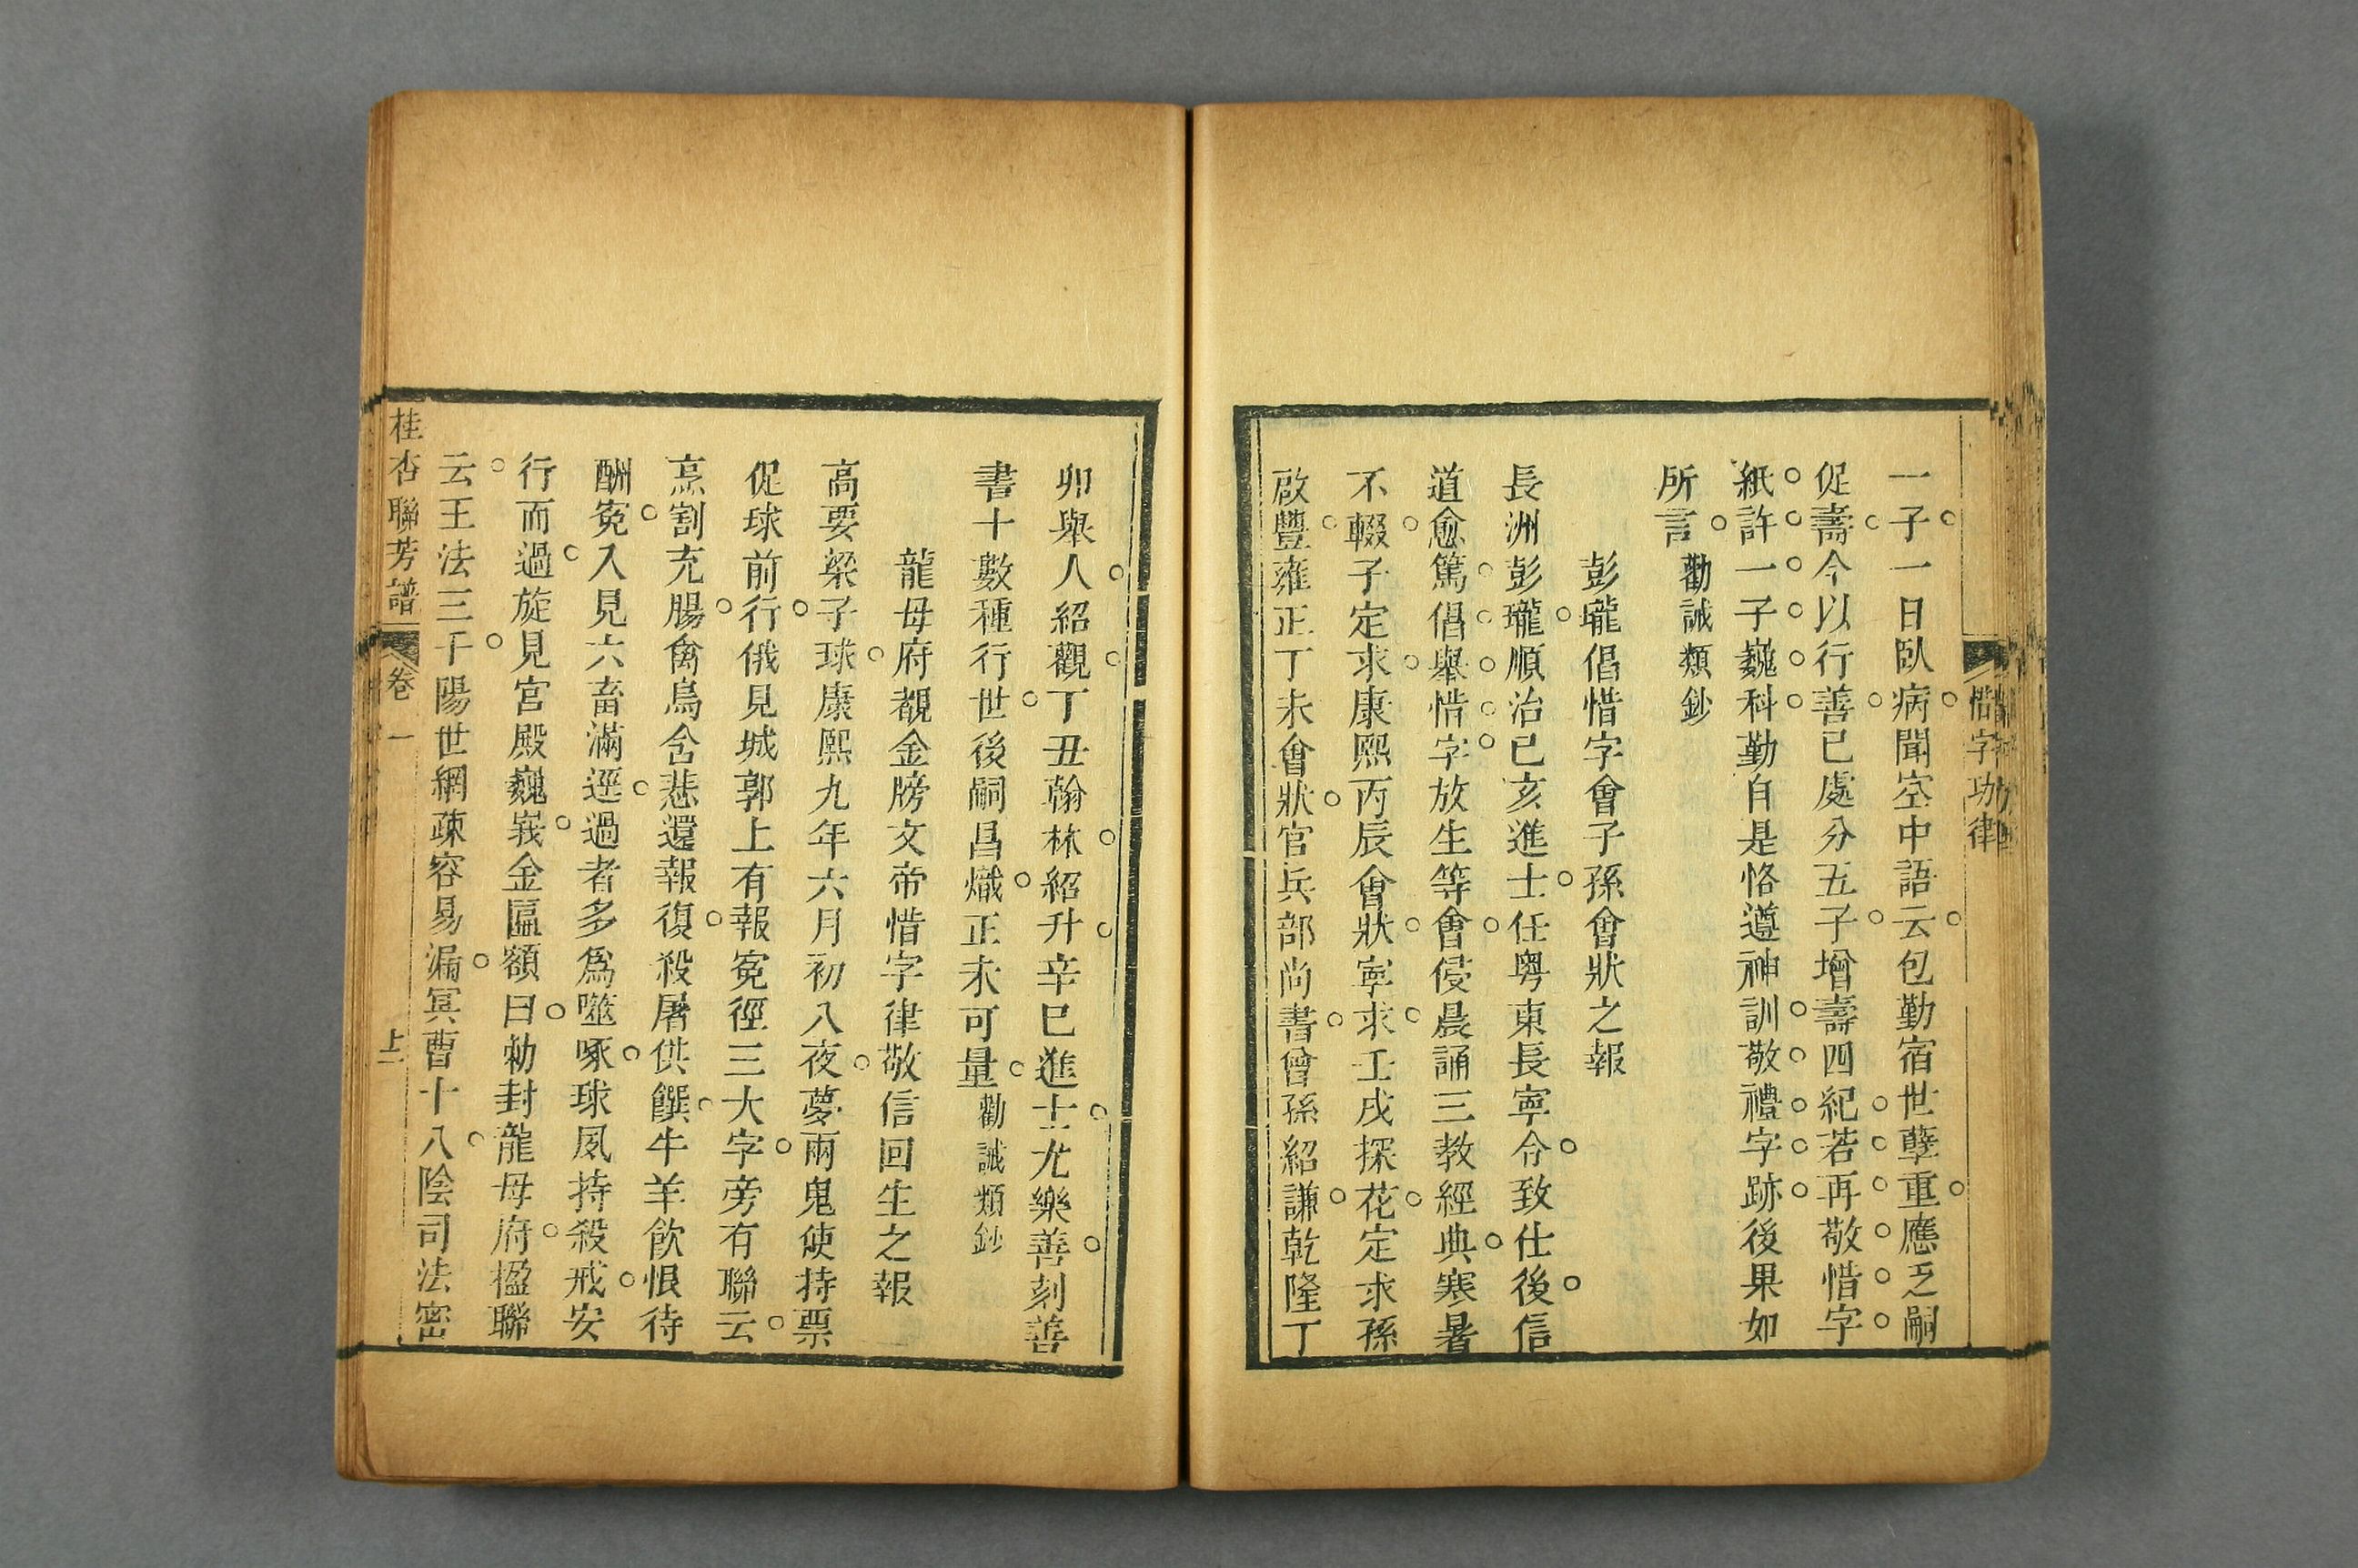 惜字功律
一子一日臥病聞空中語云包勤宿世孽重應乏嗣
促壽今以行善已處分五子增壽四紀若再敬惜字
紙許一子巍科勤自是恪遵神訓敬禮字跡後果如
所言勸誡類鈔
彭瓏倡惜字會子孫會狀之報
長洲彭瓏順治己亥進士任粵東長寧令致仕後信
道愈篤倡舉惜字放生等會侵晨誦三教經典寒暑
不輟子定求康熙丙辰會狀寧求壬戌探花定求孫
啟豐雍正丁未會狀官兵部尚書曾孫紹謙乾隆丁
卯舉人紹觀丁丑翰林紹升辛巳進士尤樂善刻善
書十數種行世後嗣昌熾正未可量勸誡類鈔
龍母府覩金牓文帝惜字律敬信回生之報
高要梁子球康熙九年六月初八夜夢兩鬼使持票
促球前行俄見城郭上有報冤徑三大字旁有聯云
烹割充腸禽鳥含悲還報復殺屠供饌牛羊飲恨待
酬冤入見六畜滿逕過者多為噬啄球夙持殺戒安
行而過旋見宮殿巍峩金匾額曰勅封龍母府楹聯
云王法三千陽世網疎容易漏冥曹十八陰司法密
桂杏聯芳譜
卷一
上二